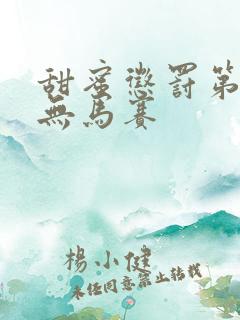 甜蜜懲罰第
無馬賽
楊小健
未任同意禁止轉載